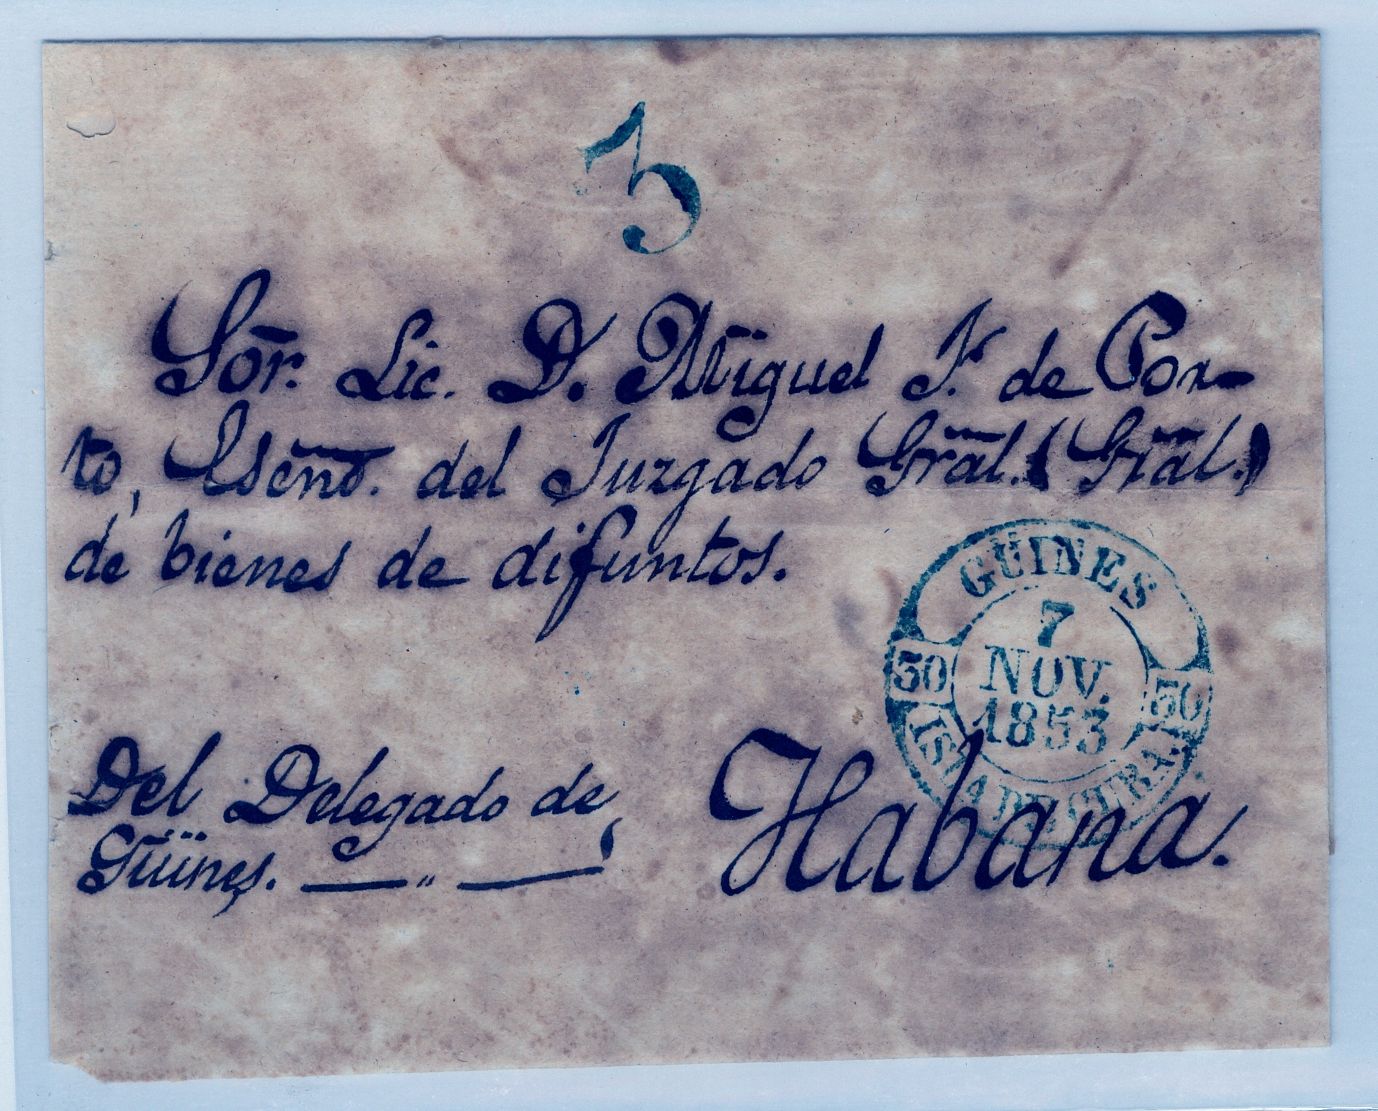 3
Sōr. Lic. D. Miguel F. de Por-
to, Escño. del Juzgado Grãl. (Grãl.)
de bienes de difuntos.
GÜINES
7
NOV.
1853
30
30
ISLA DE CUBA.
Del Delegado de
Güines. — „ —
Habana.